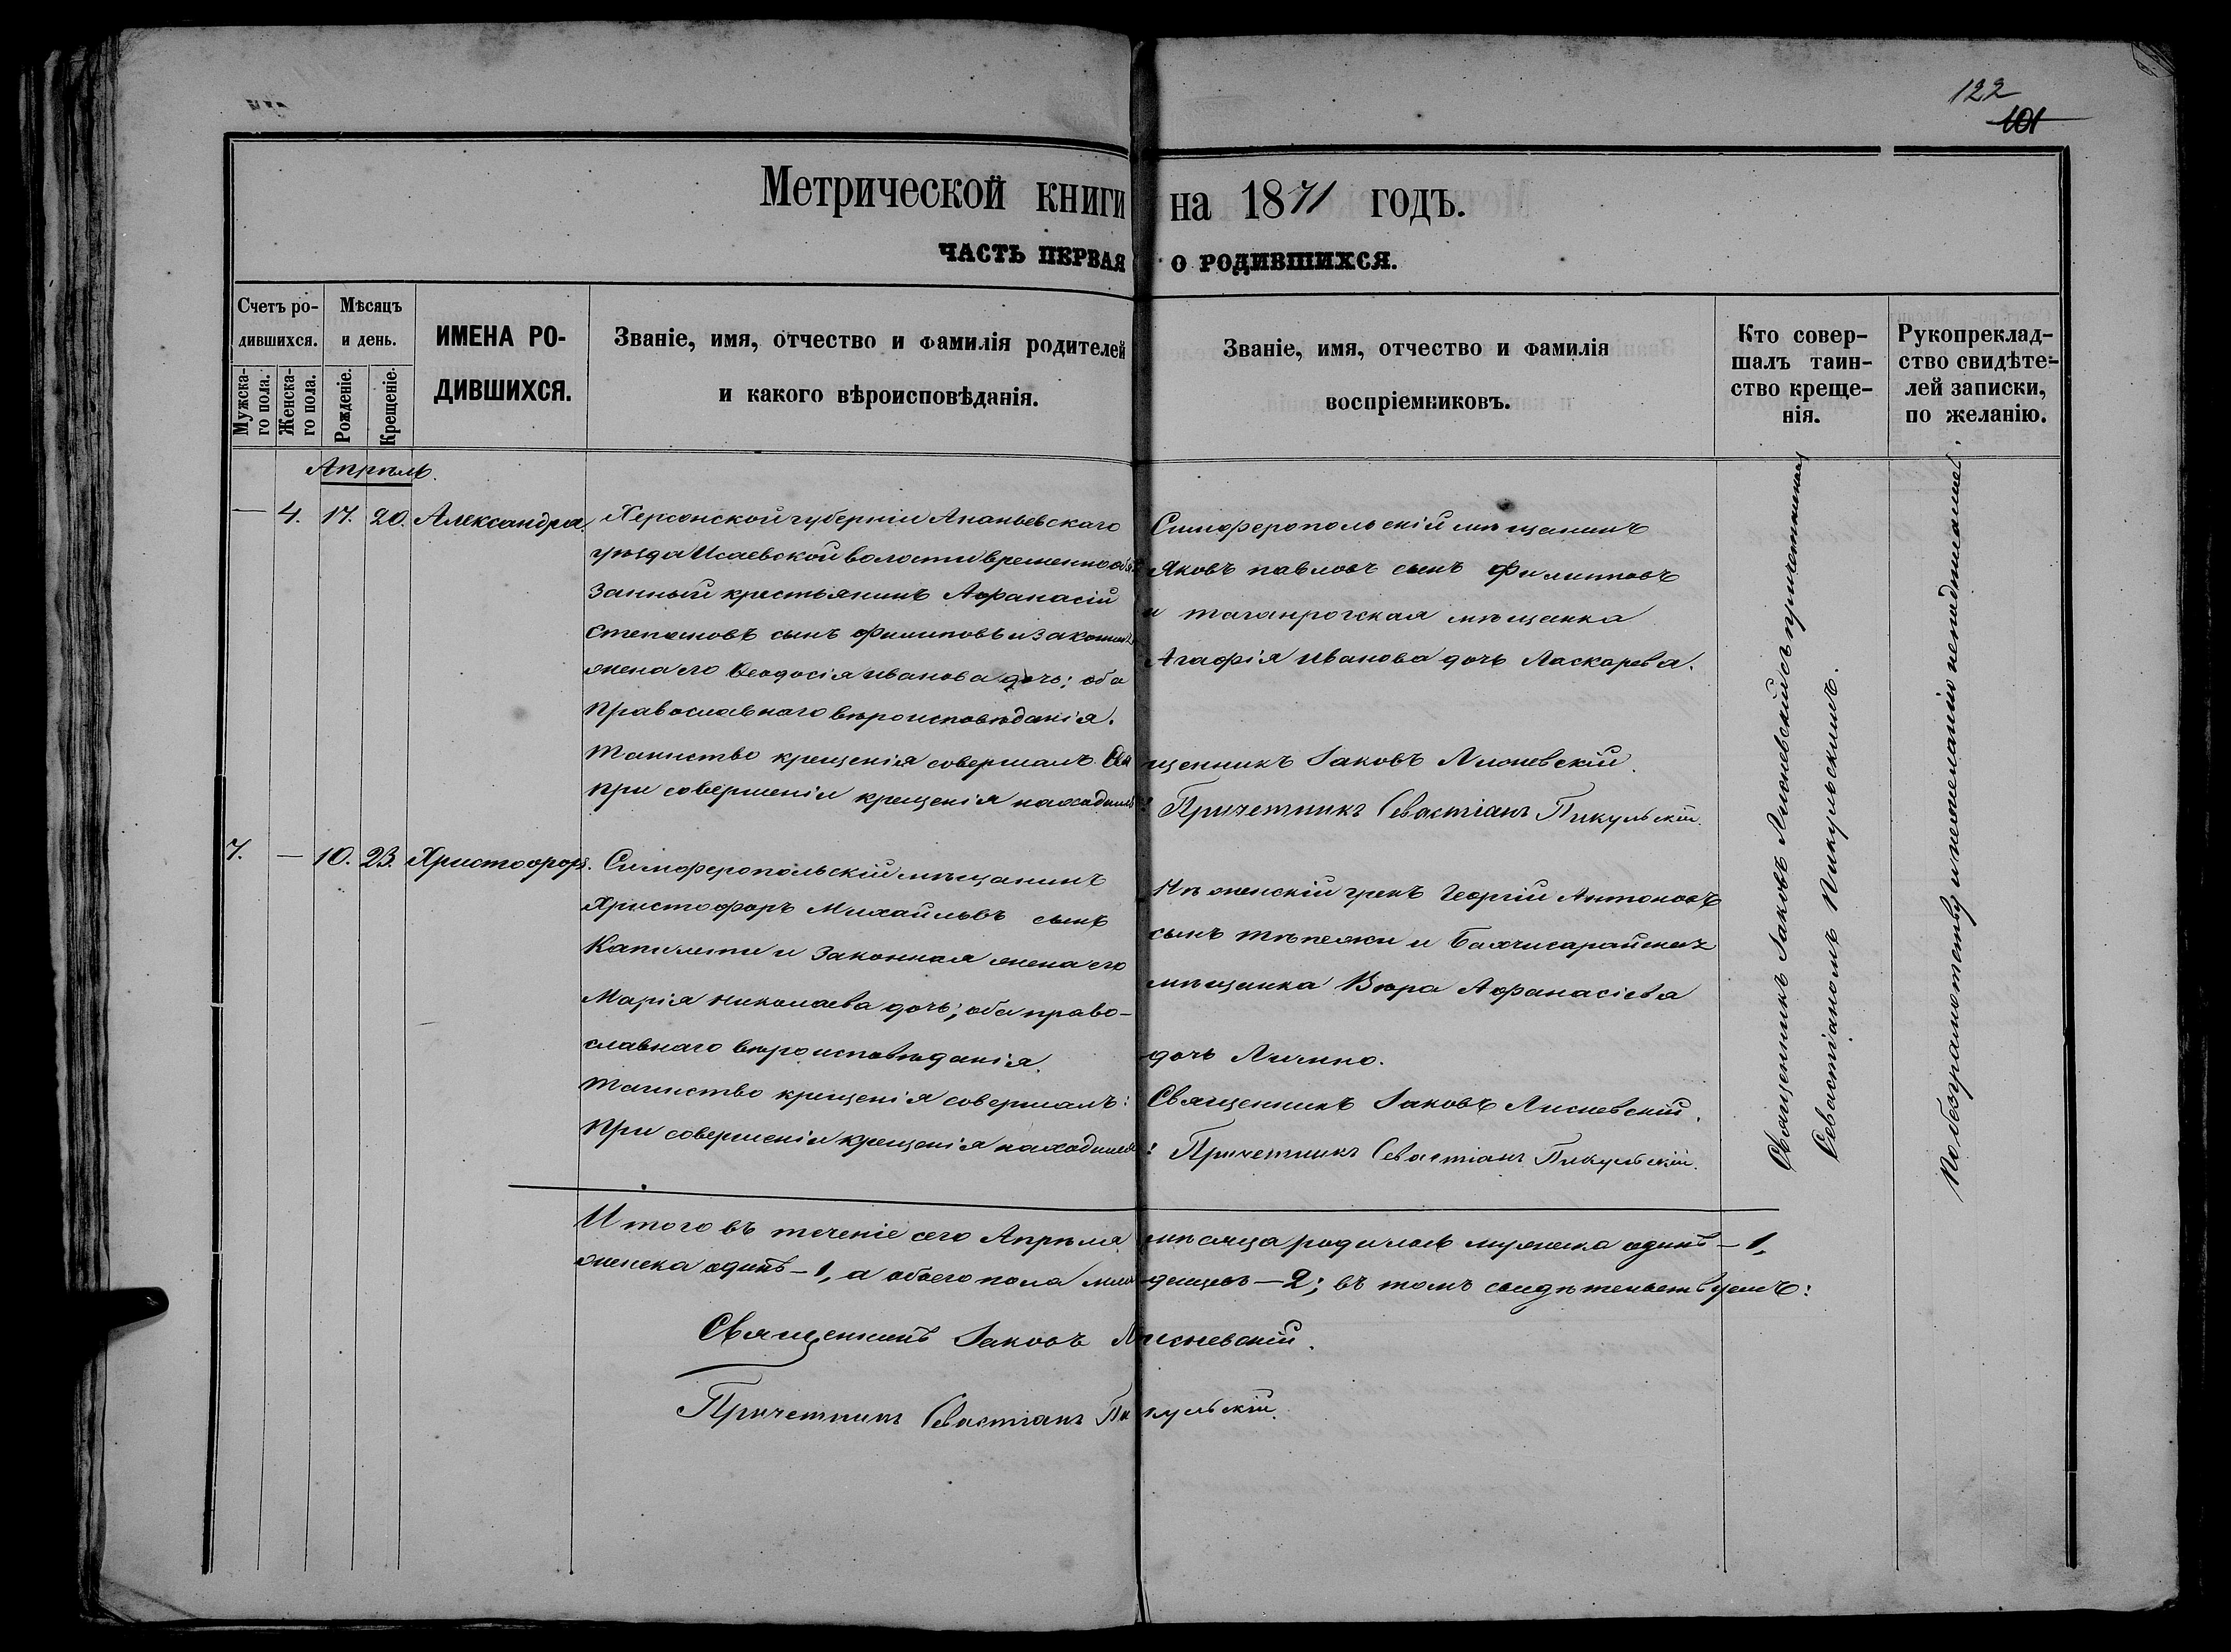 122
101
Метрической книги на 1871 годъ.
ЧАСТЬ ПЕРВАЯ о РОДИВШИХСЯ.
Счетъ ро-
дившихся.
Мужска-
го пола.
Женска-
го пола.
Мѣсяцъ
и день.
Рожденіе.
Крещеніе.
ИМЕНА РО-
ДИВШИХСЯ.
Званіе, имя, отчество и фамилія родителей
и какого вѣроисповѣданія.
Званіе, имя, отчество и фамилія
воспріемниковъ.
Кто совер-
шалъ таин-
ство креще-
нія.
Рукопреклад-
ство свидѣте-
лей записки,
по желанію.
Апрѣль.
— 4. 17. 20. Александра.
Херсонской губерніи Ананьевскаго
уѣзда Исаевской волости временнообя
занный крестьянинъ Афанасій
Степановъ сынъ Филиповъ и законная
жена его Ѳеодосія иванова дочь; оба
православнаго вѣроисповѣданія.
Симферопольскій мѣщанинъ
Яковъ павловъ сынъ Филиповъ
и таганрогская мѣщанка
Агафія иванова дочь Ласкарева.
Таинство крещенія совершалъ: Священникъ Іаковъ Лисневскій.
При совершеніи крещенія находился: Причетникъ Севастіанъ Пикульскій.
7. — 10. 23. Христофоръ.
Симферопольскій мѣщанинъ
Христофоръ Михаиловъ сынъ
Капилети и законная жена его
Марія николаева дочь; оба право-
славнаго вѣроисповѣданія.
Нѣженскій грекъ Георгій Антоновъ
сынъ и Бахчисарайская
мѣщанка Вѣра Афанасіева
дочь
Таинство крещенія совершалъ: Священникъ Іаковъ Лисневскій.
При совершеніи крещенія находился: Причетникъ Севастіанъ Пикульскій.
Священникъ Іаковъ Лисневскій съ причетникомъ
Севастіаномъ Пикульскимъ.
По безграмотству и нежеланію неподписались.
Итого въ теченіе сего Апрѣля мѣсяца родилось мужеска одинъ — 1,
женска одинъ — 1, а обоего пола младенцевъ — 2; въ томъ свидѣтельствуемъ:
Священникъ Іаковъ Лисневскій.
Причетникъ Севастіанъ Пикульскій.